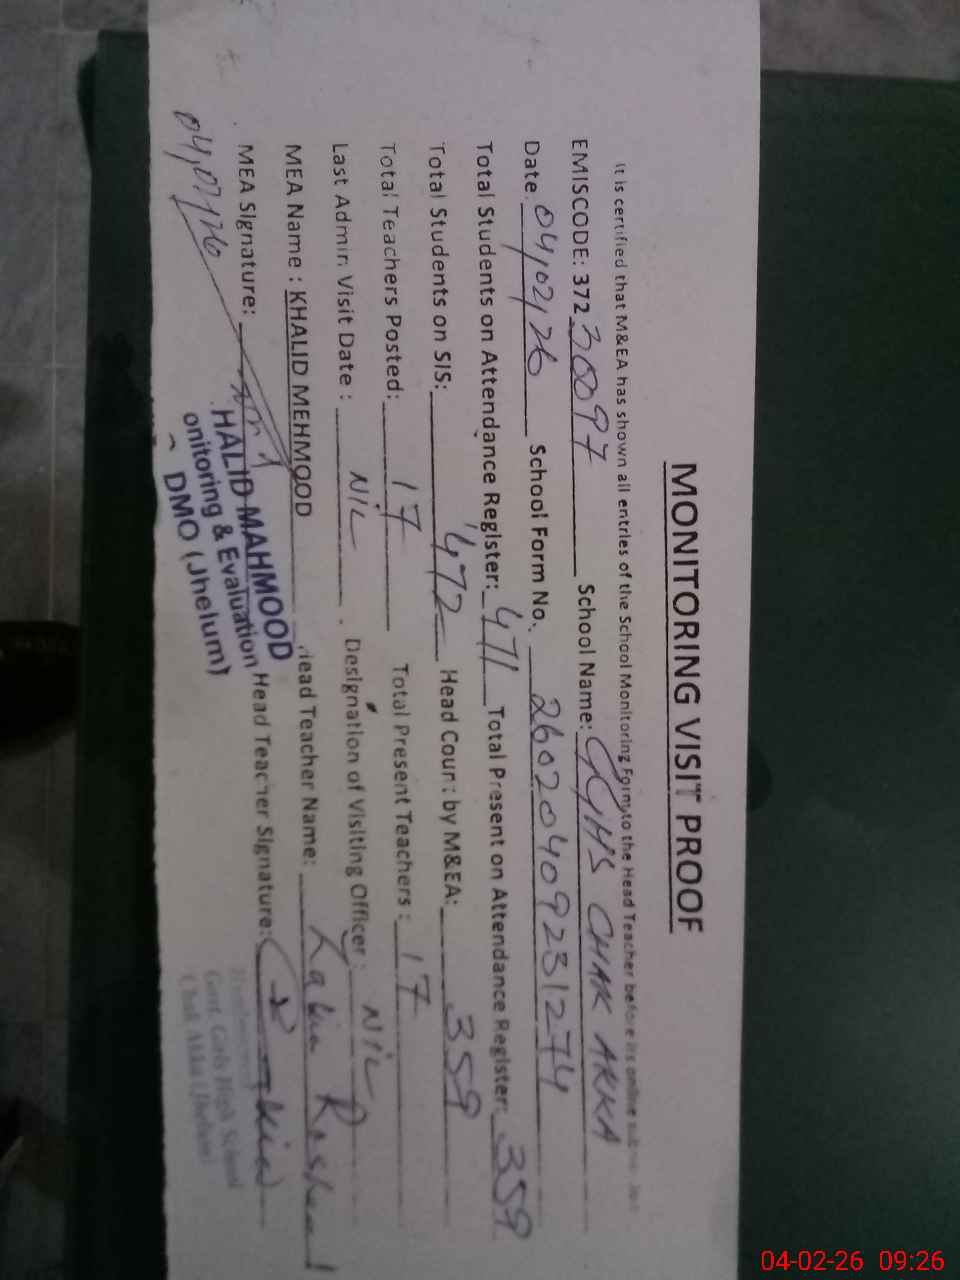 MONITORING VISIT PROOF
It is certified that M&EA has shown all entries of the School Monitoring Form to the Head Teacher before its online
EMISCODE: 37230097 School Name: GGHS CHAK AKKA
Date: 04,02,26 School Form No. 26020409231274
Total Students on Attendance Register: 471 Total Present on Attendance Register: 359
Total Students on SIS: 472 Head Count by M&EA: 359
Total Teachers Posted: 17 Total Present Teachers: 17
Last Admin Visit Date: NIL Designation of Visiting Officer: NIL
MEA Name: KHALID MEHMOOD Head Teacher Name:
MEA Signature: Head Teacher Signature:
HALID MAHMOOD
onitoring & Evaluation
DMO (Jhelum)
Govt. Girls High School
Chak Akka (Jhelum)
04-02-26 09:26